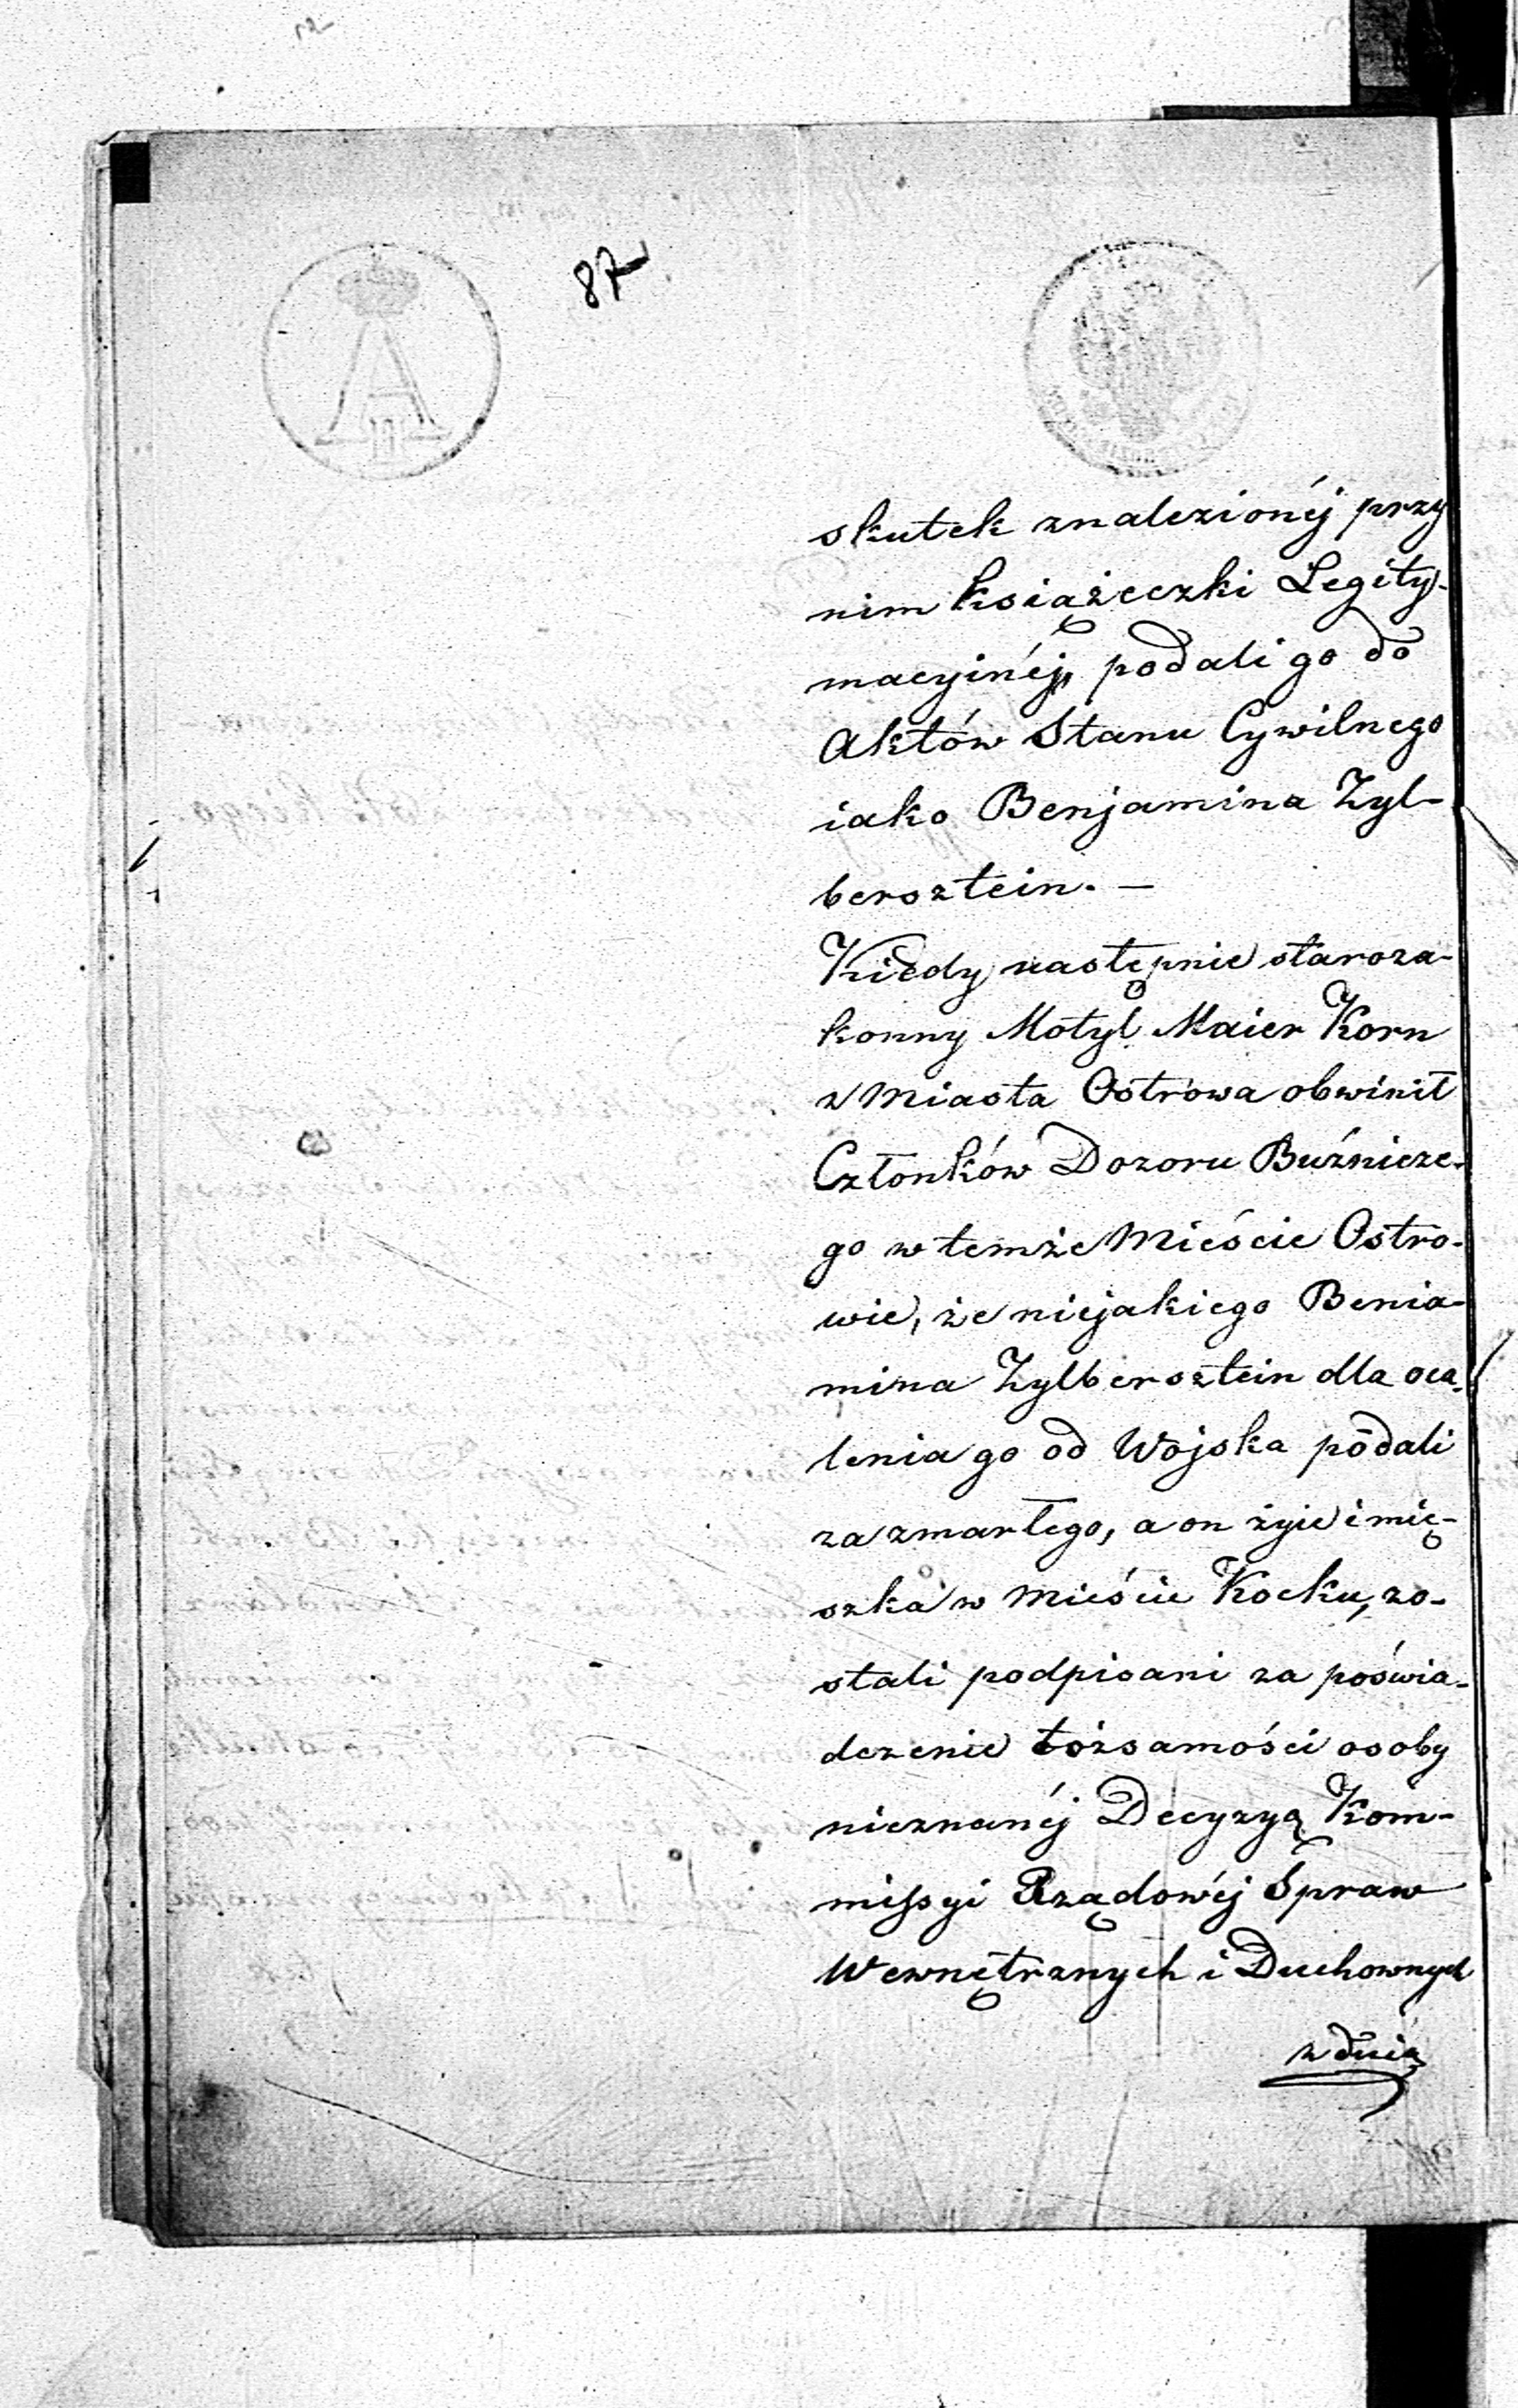 87
skutek znalezionéj przy
nim Książeczki Legity-
macyjnéj, podali go do
Aktów Stanu Cywilnego
iako Benjamina Zyl-
bersztein. —
Kiedy następnie staroza-
konny Motyl Maier Korn
z Miasta Ostrowa obwinił
Członków Dozoru Bużnicze-
go w temże Mieście Ostro-
wie, że niejakiego Benia-
mina Zylbersztein dla oca-
lenia go od Wojska podali
za zmarłego, a on żyie i mię-
szka w Mieście Kocku, zo-
stali podpisani za poświa-
dczenie tożsamości osoby
nieznanéj Decyzyą Kom-
missyi Rządowéj Spraw
Wewnętrznych i Duchownych
z dnia